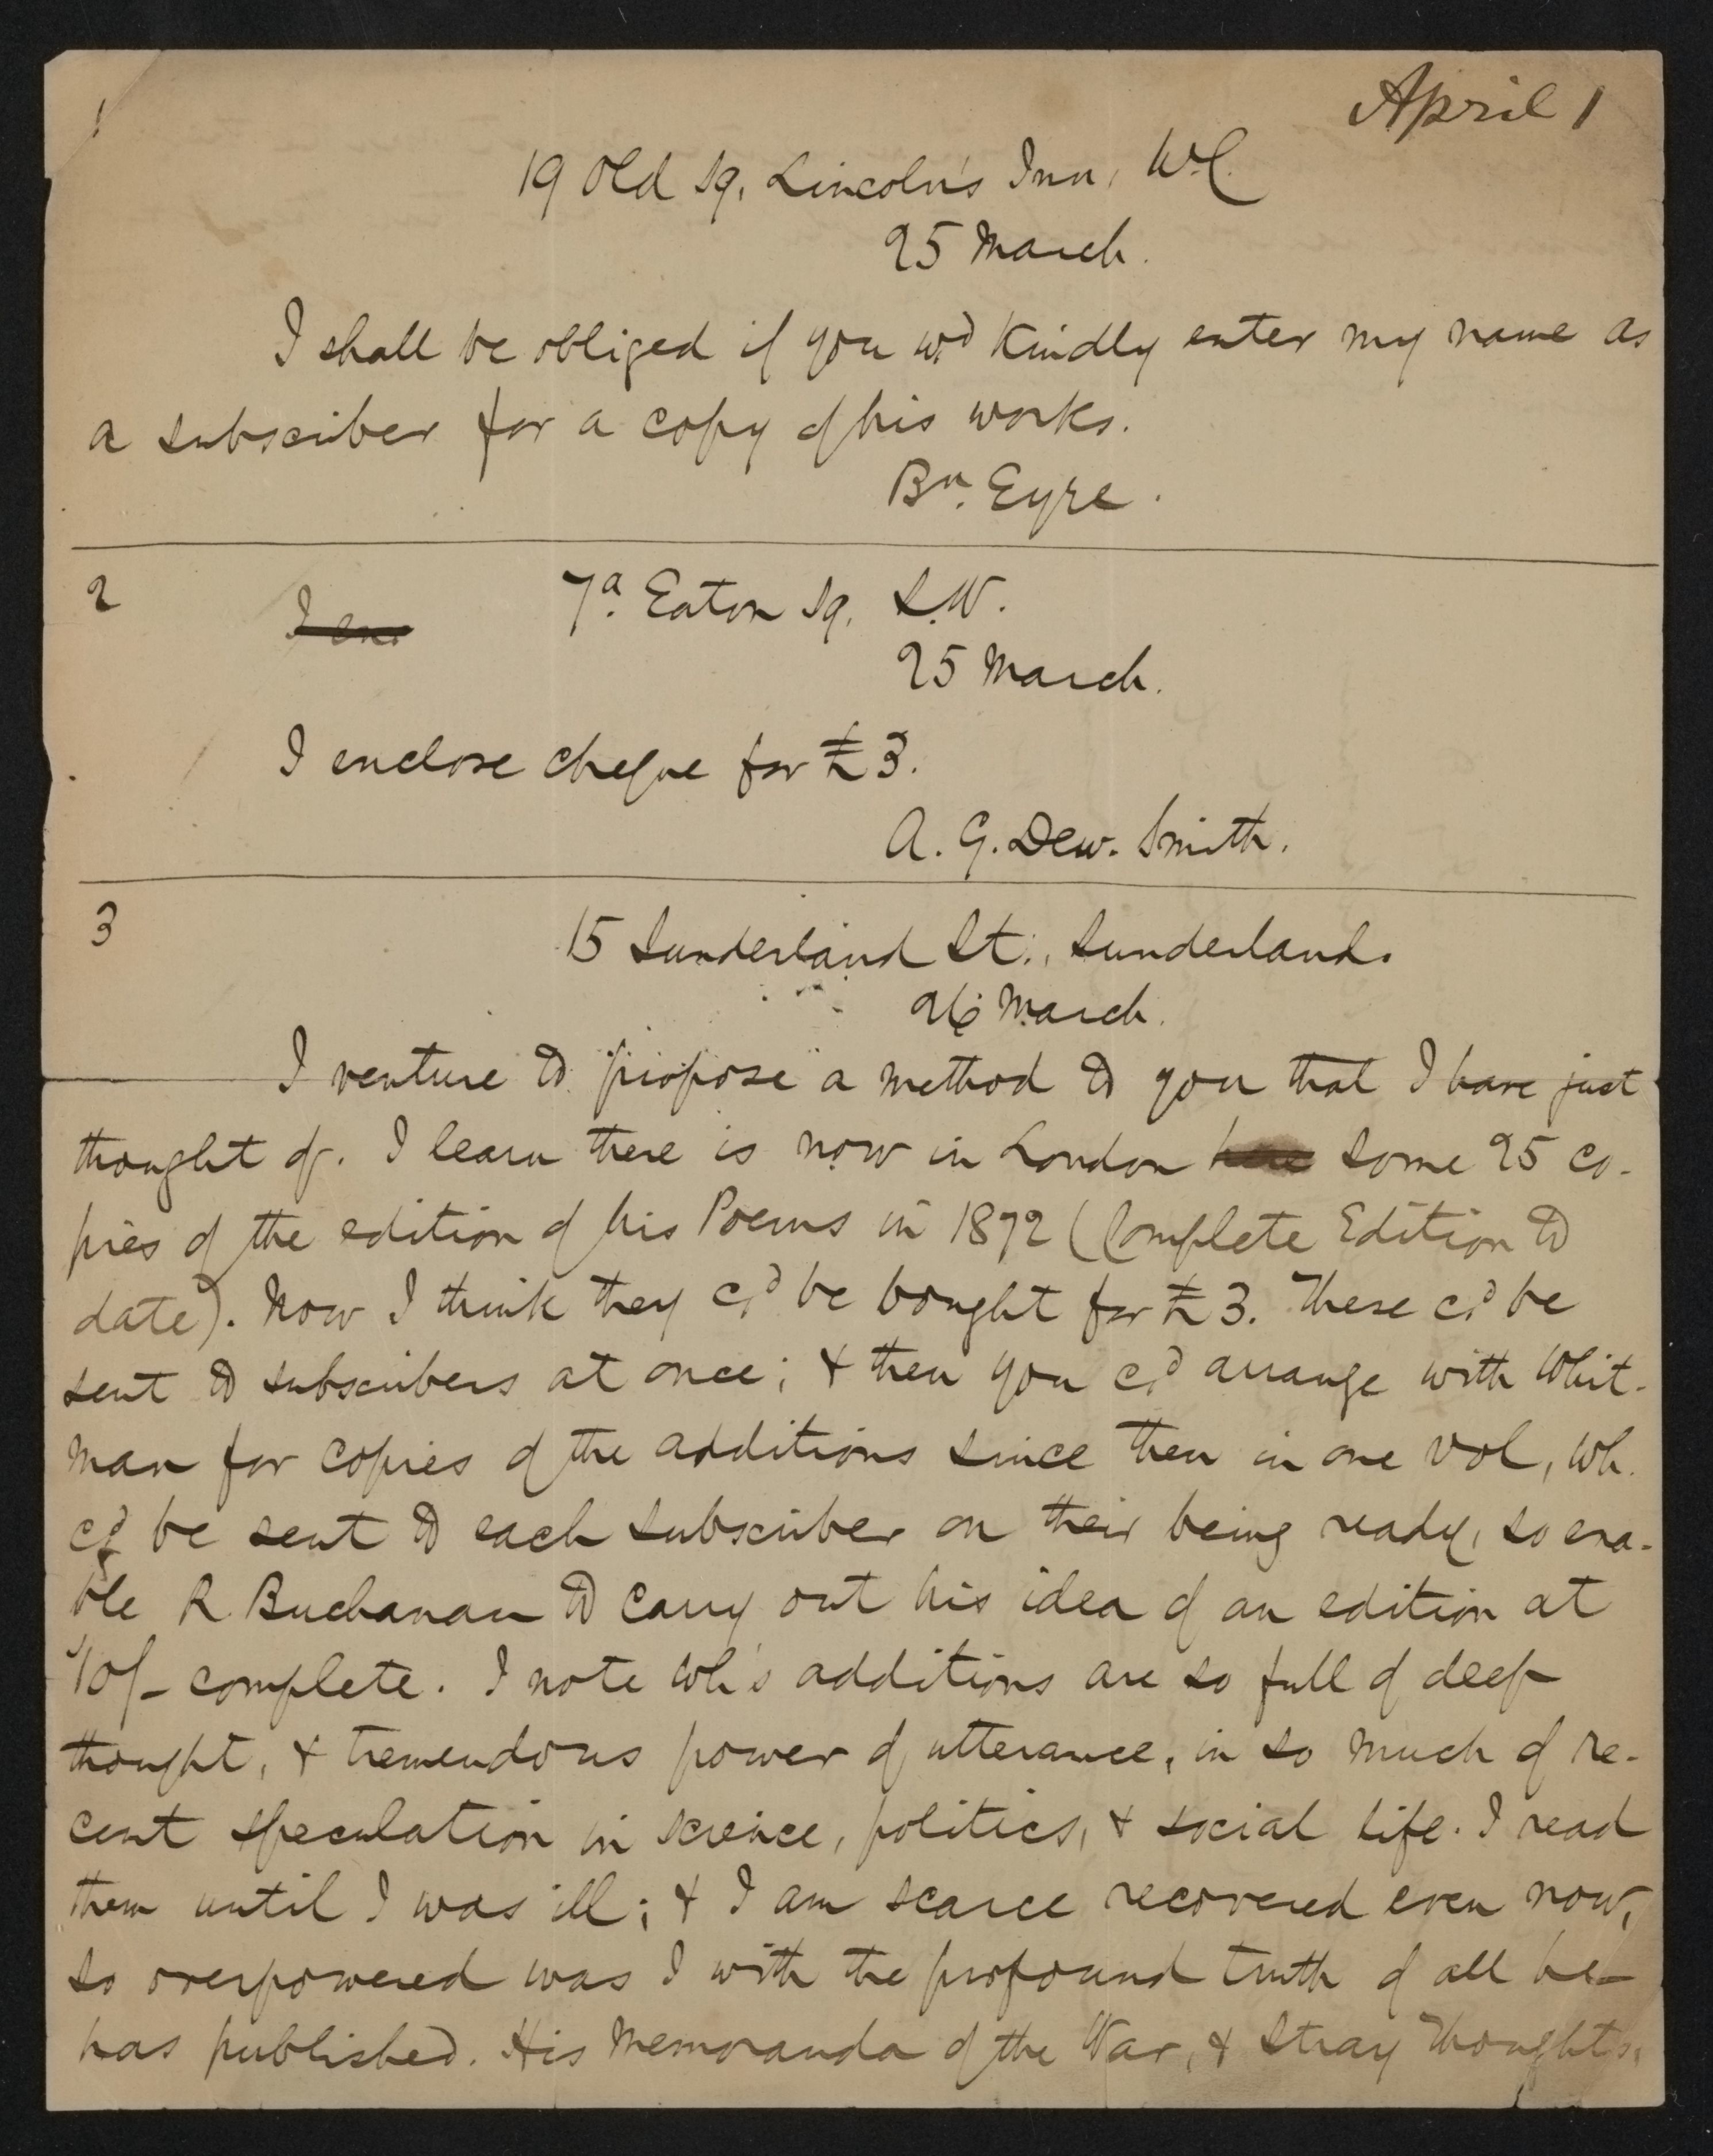 April 1
1
19 Old Sq. Lincoln's Inn, W.C.
25 March.
I shall be obliged if you wd kindly enter my name as
a subscriber for a copy of his works.
Bn. Eyre.
2
7a. Eaton Sq. S.W.
25 March.
I enclose cheque for £3.
A. G. Dew-Smith.
3
15 Sunderland St., Sunderland.
26 March.
I venture to propose a method to you that I have just
thought of. I learn there is now in London here some 25 co-
pies of the edition of his Poems in 1872 (Complete Edition to
date). Now I think they cd be bought for £3. These cd be
sent to subscribers at once; & then you cd arrange with Whit-
man for copies of the additions since then in one vol, wh.
cd be sent to each subscriber on their being ready, so ena-
ble R. Buchanan to carry out his idea of an edition at
10/- complete. I note Wh's additions are so full of deep
thought, & tremendous power of utterance, in so much of re-
cent speculation in science, politics, & social life. I read
them until I was ill; & I am scarce recovered even now,
so overpowered was I with the profound truth of all he
has published. His Memoranda of the War, & Stray Thoughts,